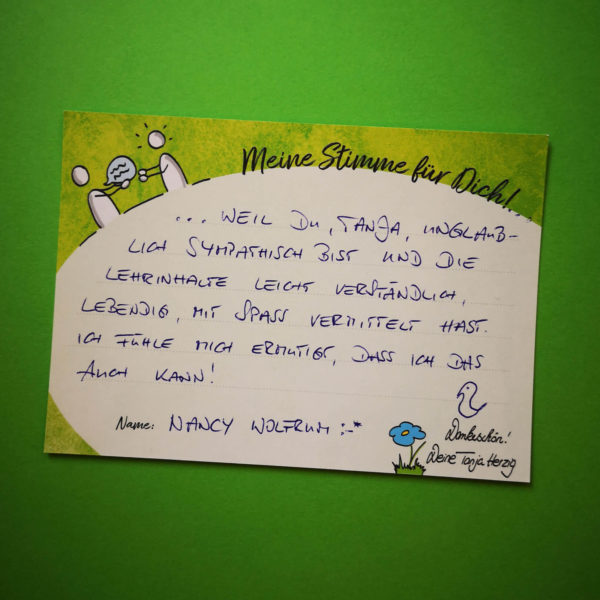 Meine Stimme für Dich!...
... WEIL DU, TANJA, UNGLAUB-
LICH SYMPATHISCH BIST UND DIE
LEHRINHALTE LEICHT VERSTÄNDLICH,
LEBENDIG, MIT SPASS VERMITTELT HAST.
ICH FÜHLE MICH ERMUTIGT, DASS ICH DAS
AUCH KANN!
Name: NANCY WOLFRUM :-*
Dankeschön!
Deine Tanja Herzig